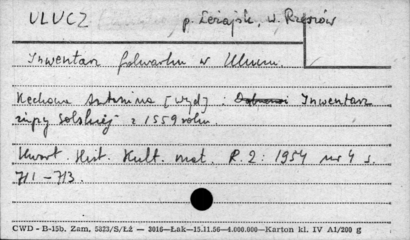 ULUCZ p. Leżajsk, w. Rzeszów
Inwentarz folwarku w Uluczu.
Kechowa Antonina [wyd] : Inwentarz
żupy solskiej z 1559 roku.
Kwart. Hist. Kult. mat. R. 2: 1954 nr 4 s.
711-713.
CWD - B-15b. Zam. 5823/S/Łż — 3016—Łak—15.11.56—4.000.000—Karton kl. IV A1/200 g